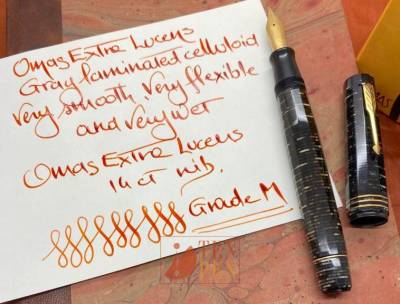 Omas Extra Lucens
Gray laminated celluloid
Very smooth, Very flexible
and very wet
Omas Extra Lucens
14 ct nib.
Grade M